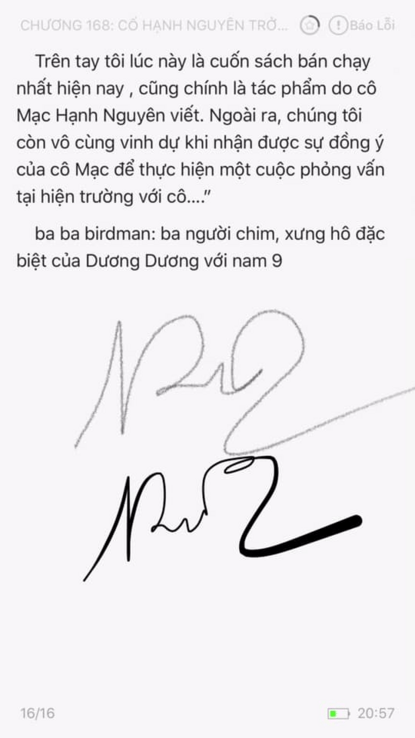 CHƯƠNG 168: CỐ HẠNH NGUYÊN TRỞ... Báo Lỗi
Trên tay tôi lúc này là cuốn sách bán chạy
nhất hiện nay , cũng chính là tác phẩm do cô
Mạc Hạnh Nguyên viết. Ngoài ra, chúng tôi
còn vô cùng vinh dự khi nhận được sự đồng ý
của cô Mạc để thực hiện một cuộc phỏng vấn
tại hiện trường với cô....”
ba ba birdman: ba người chim, xưng hô đặc
biệt của Dương Dương với nam 9
16/16 20:57